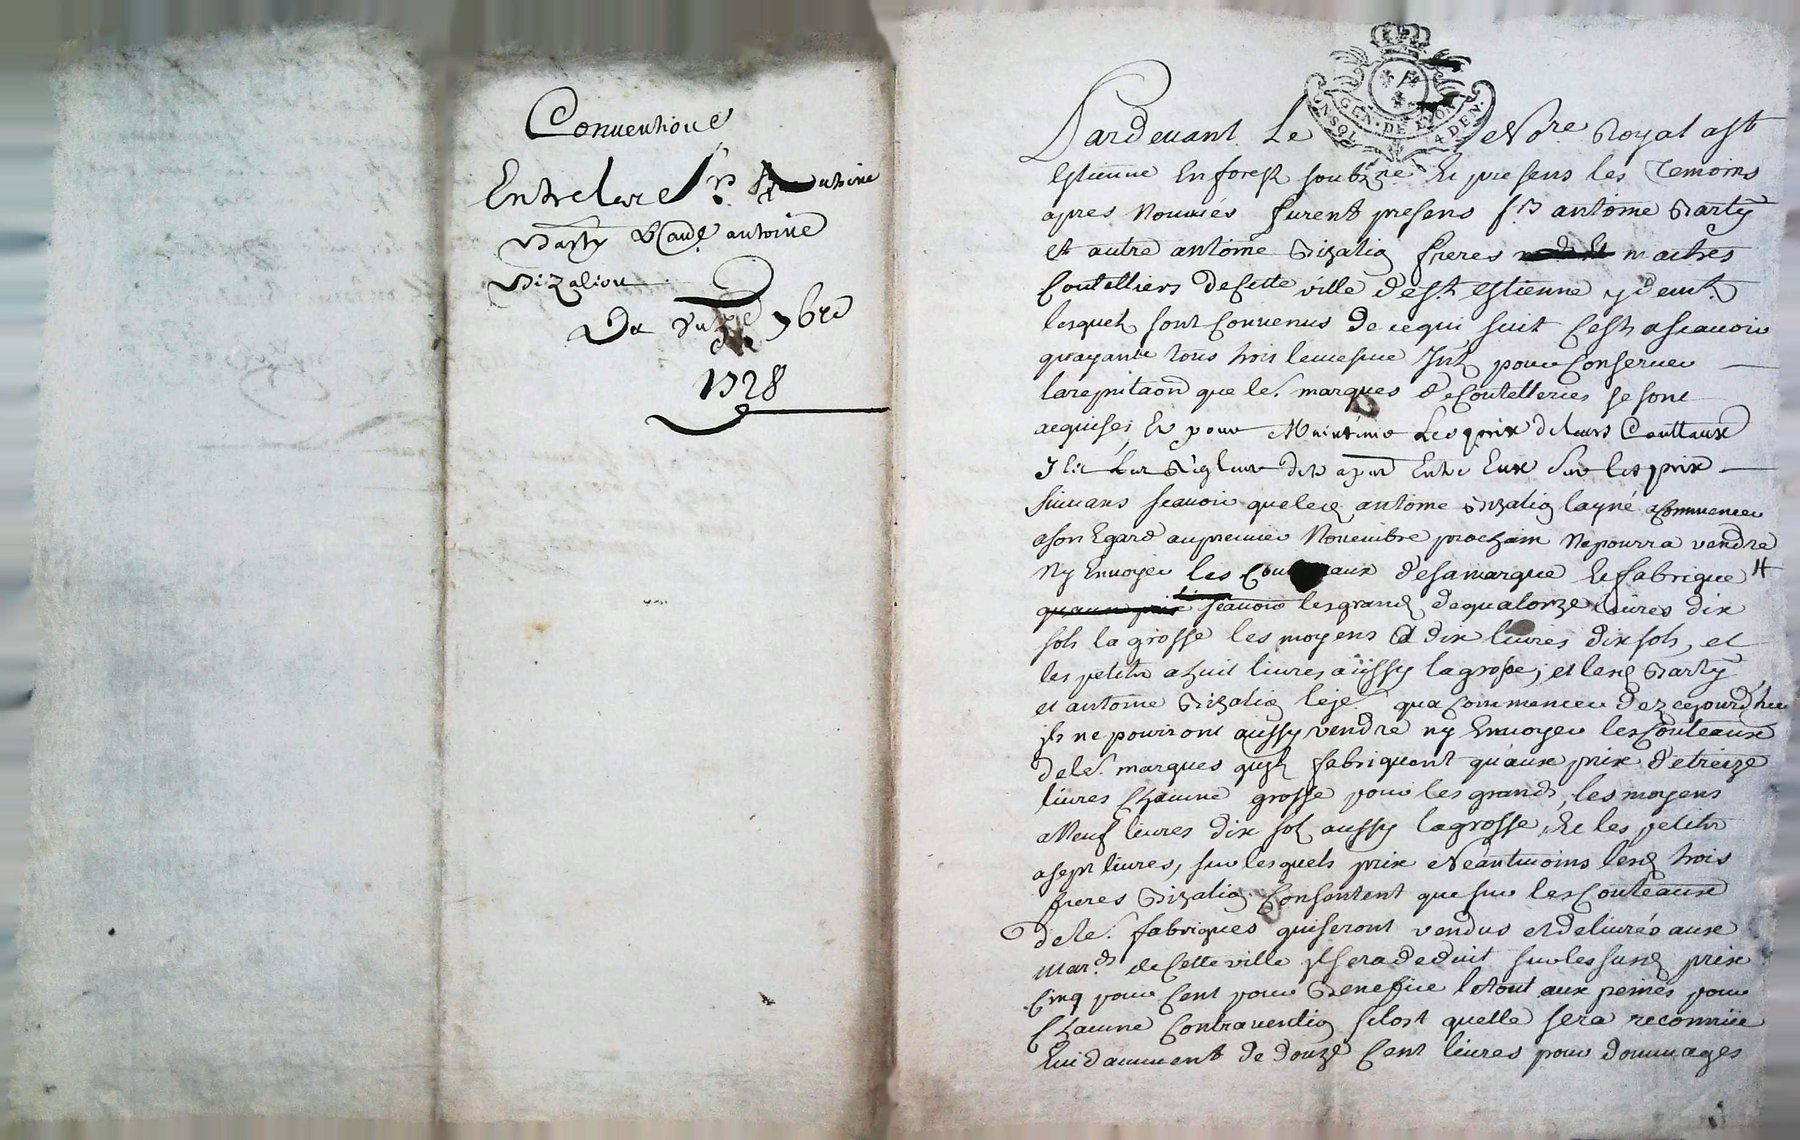 Conventions
Entre les Srs Antoine
Barty & autre antoine
Bizalion
Du 9bre
1728
GEN. DE LYON
UN SOL 4 DEN.
Pardevant Le Nore Royal a st
Estienne En forest soubzne Et presens les Temoins
apres Nommés furent presens srs antoine Barty
et autre antoine Bizalion freres maitres
Coutelliers de Cette ville de st Estienne y demt
lesquels sont Convenus de ce qui suit C'est ascavoir
qu'ayants tous trois le mesme Int pour Conserver
la reputaon que les marques de Coutelleries se sont
acquises Et pour Maintenir Les prix de leurs Couttaux
Entre Eux Sur les prix
suivans scavoir que led antoine Bizalion layné a Commencer
a son Egard au premier Novembre prochain Ne pourra vendre
Ny Envoyer les Couteaux de sa marque Et fabrique #
scavoir les grands de quatorze livres dix
sols la grosse les moyens a dix livres dix sols, et
les petits a huit livres aussy la grosse; et lesd Barty
et antoine Bizalion le je. qu'a Commencer dez ce jourd'huy
ils ne pouront aussy vendre ny Envoyer les Couteaux
de les. marques qu'ils fabriquent qu'aux prix de treize
livres Chacune grosse pour les grands, les moyens
a Neuf livres dix sols aussy la grosse, Et les petits
a sept livres, sur lesquels prix Neantmoins lesd trois
freres Bizalion Consentent que sur les Couteaux
de le. fabriques qui seront vendus et delivrés aux
mards de Cette ville il sera deduit sur les susd prix
Cinq pour Cent pour Benefice le tout aux peines pour
Chacune Contravention sitost quelle sera reconnüe
Evidamment de douze Cent livres pour dommages